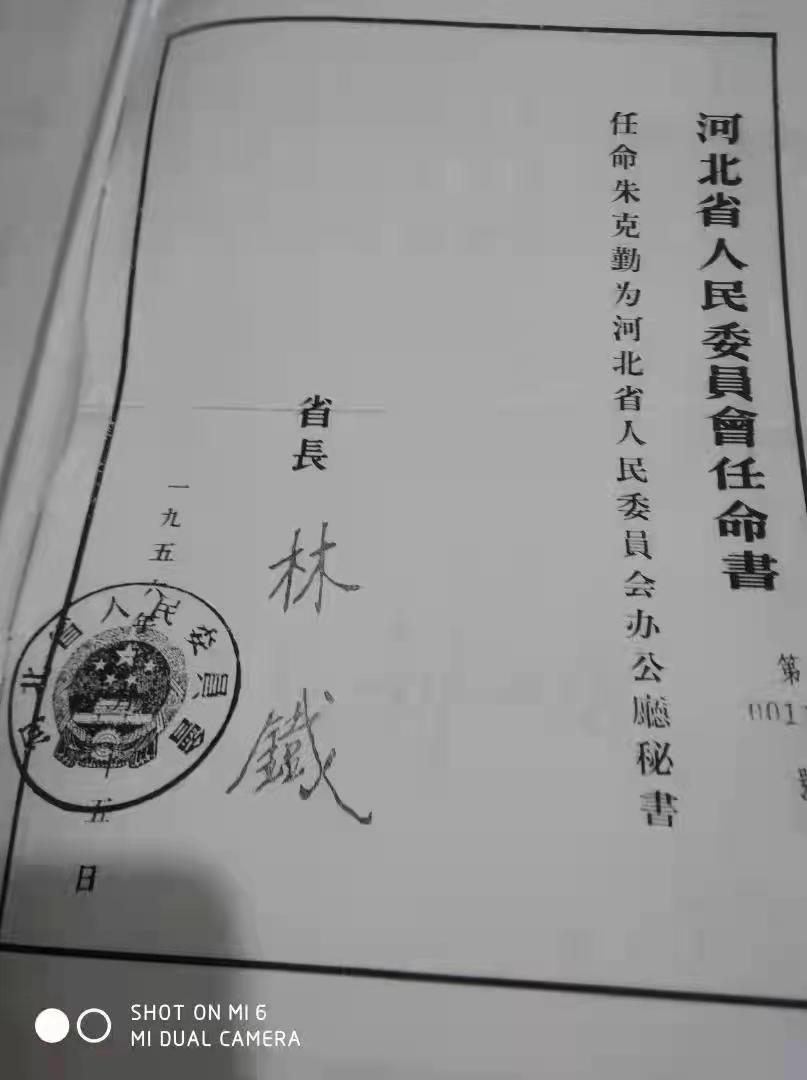 河北省人民委員會任命書
第
001
任命朱克勤为河北省人民委員会办公廳秘書
省長 林鐵
一九五 年
五
日
北省人民委員會
SHOT ON MI 6
MI DUAL CAMERA